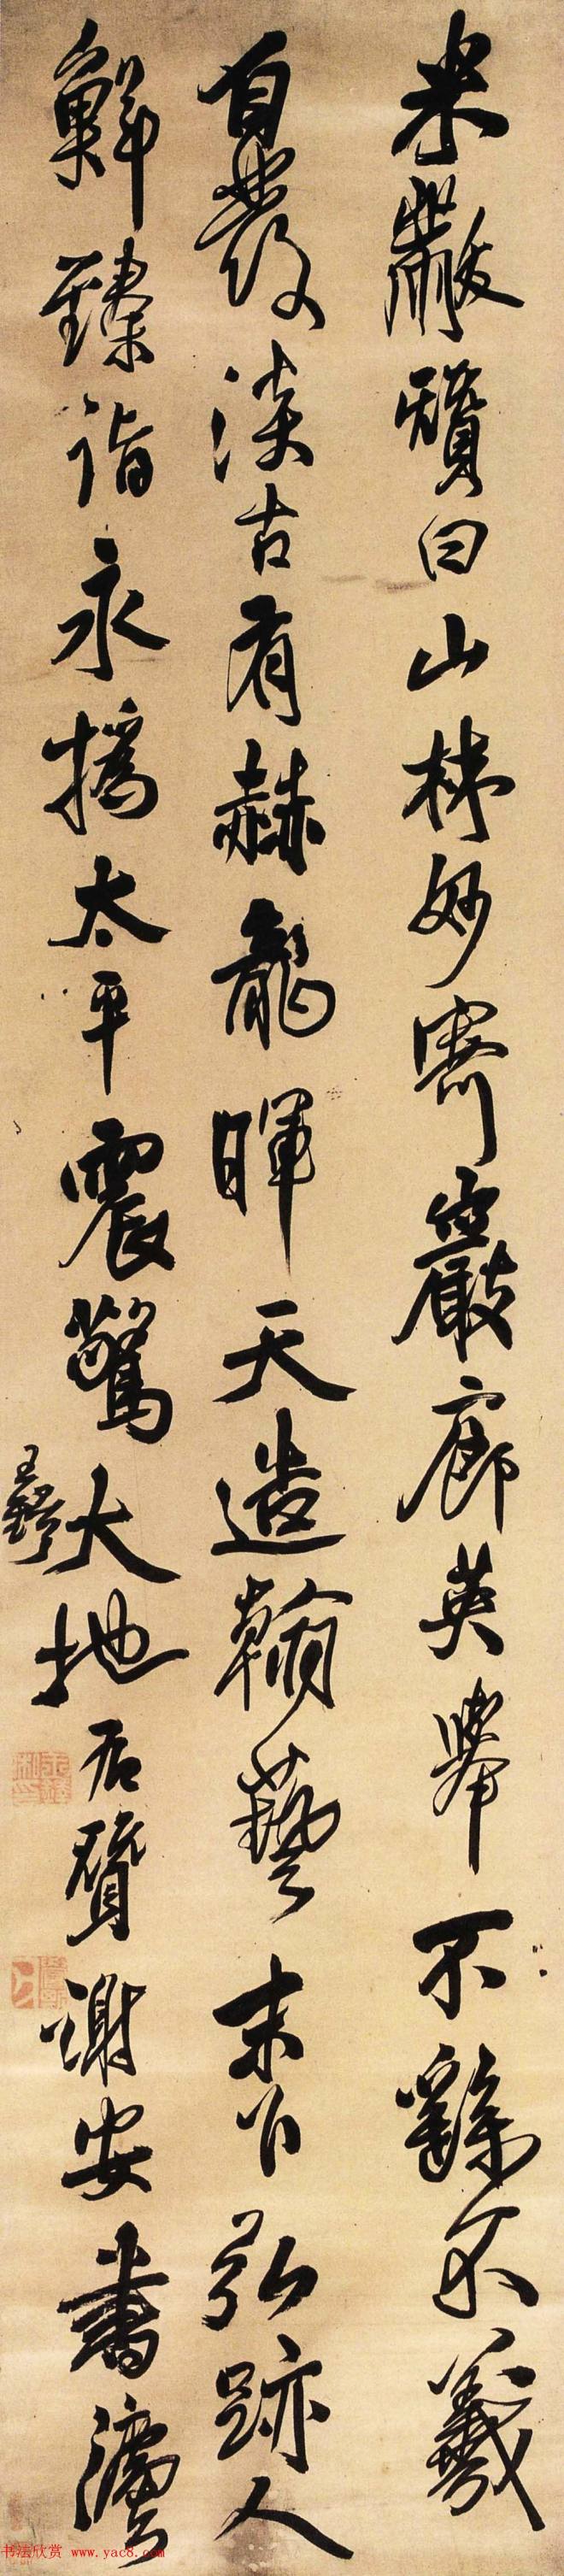 米黻贊曰山林妙寄巖廊英舉不繇不羲
自發淡古有赫龍暉天造翰藝末以弘跡人
鮮臻詣永播太平震驚大地右贊謝安書灋
王鐸
书法欣赏 www.yac8.com